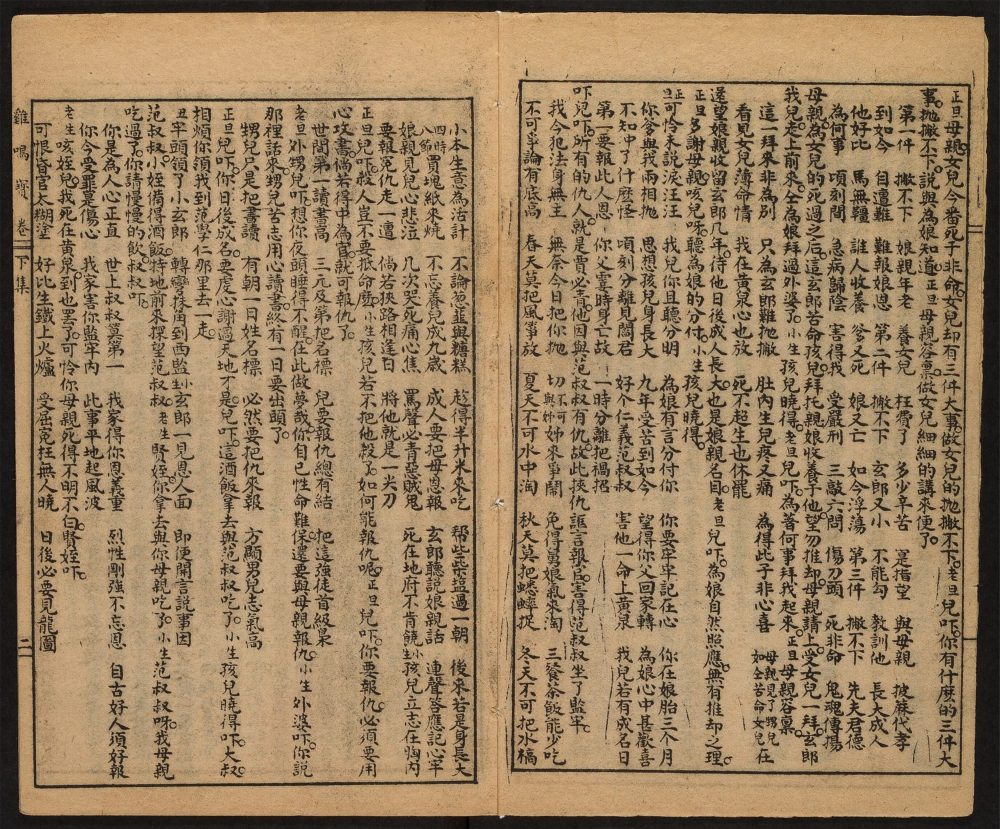 正旦母親女兒今番死于非命女兒却有三件大事做女兒的抛撇不下。老旦兒吓你有什庅的三件大
事抛撇不下說與為娘知道正旦母親容禀做女兒細細的講來便了。
第一件 撇不下 娘親年老 養女兒 枉費了 多少辛苦 寔指望 與母親 披蔴代孝
到如今 自遭難 難報娘恩 第二件 撇不下 玄郎又小 不能勾 教訓他 長大成人
他好比 馬無韁 誰人收養 爹又死 娘又亡 如今浮蕩 第三件 撇不下 先夫君德
為何事 頃刻間 急病歸陰 害得我 受嚴刑 三敲六問 傷刀頭 死非命 鬼魂傳揚
母親為女兒的死過之后這玄郎苦命孩兒拜托親娘收養子他望勿推却母親請上受女兒一拜玄郎
我兒走上前來仝為娘拜過外婆了小生孩兒曉得。老旦兒吓為着何事拜我起來。正旦母親容禀
這一拜來非為別 只為玄郎難抛撇 肚內生兒疼又痛 為得此子非心喜 母親見了甥兒 如仝苦命女兒在
看見女兒薄命情 我在黃泉心也放 死不超生也休罷
還望娘親收留玄郎几年待他日後成人長大也是娘親名目老旦兒吓為娘自然照應無有推却之理
正旦多謝母親咳兒呀聽為娘的分付。小生孩兒曉得。
正旦可怜未說淚汪汪 我兒你且聽分明 為娘有言分付你 你要牢牢記在心 你在娘胎三个月
你爹與我兩相抛 思想孩兒身長大 九年受苦到如今 望得你父回家轉 為娘心中甚歡喜
不知中了什庅怪 頃刻分離見閻君 好个仁義范叔叔 害他一命上黃泉 我兒若有成名日
第一要報此人恩 你父霎時身亡故 一時分離把禍招
吓兒吓所有的仇人就是賈必青他因與范叔叔有仇故此挾仇謊言報官害得范叔叔坐了監牢
我今犯法身無主 無是今日把你抛 切不可與姊妹來爭鬧 免得舅娘氣來淘 三餐茶飯能少吃
不可爭論有底高 春天莫把風箏放 夏天不可水中淘 秋天莫把蟋蟀捉 冬天不可把水犒
小本生意為活計 不論葱韮與糖糕 趁得半升米來吃 帮些柴塩過一朝 後來若是身長大
四時八節買塊紙來燒 不忘養兒成九歲 成人要把母恩報 玄郎聽說娘親話 連聲答應記心牢
娘親見兒心悲泣 几次哭死痛心焦 罵聲必青惡賊鬼 死在地府不肯饒 小孩兒立志在胸內
要報寃仇走一遭 倘若狹路相逢日 將他就是一尖刀
正旦兒吓。殺人豈不要抵命麽小生孩兒若不把他殺了如何能報仇呢。正旦兒吓你要報仇必須要用
心攻書倘若得中為官就可報仇了。
世間第一讀書高 三元及第把名標 兒要報仇總有結 把這強徒首級梟
老旦外甥兒吓想你夜頭睡得不醒在此做夢哉你自已性命難保還要與母親報仇。小生外婆吓你說
那裡話來甥兒苦志用心讀書終有一日要出頭了。
甥兒只是把書讀 有朝一日姓名標 必然要把仇來報 方顯男兒志氣高
正旦兒吓。你日後成名要虔心謝過天地才是。兒吓這酒飯拿去與范叔叔吃了。小生孩兒曉得吓大叔
相煩你須我到范學仁那里去一走。
丑牢頭領了小玄郎 轉彎抹角到西監 小玄郎一見恩人面 即便開言說事因
范叔叔小姪備得酒飯特地前來探望范叔叔老生賢姪你拿去與你母親吃了。小生范叔叔呀我母親
吃過了你請慢慢的飲叔叔吓
你是為人心正直 世上叔叔算第一 我家得你恩義重 烈性剛強不忘恩 自古好人須好報
你今受罪是傷心 我家害你監牢內 此事平地起風波
老生咳姪兒我死在黃泉到也罷了可怜你母親死得不明不白。賢姪吓
可恨昏官太糊塗 好比生鐵上火爐 受屈寃枉無人曉 日後必要見龍圖
雞鳴寳卷 下集 二